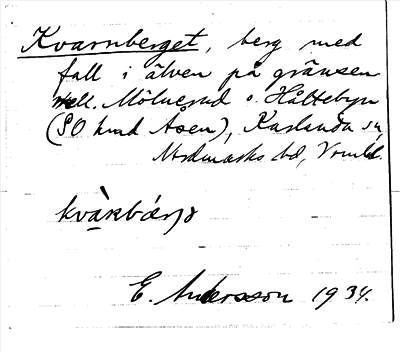 Kvarnberget, berg med
fall i älven på gränsen
mell. Mölnerud o. Håltebyn
(SO hmd Åsen), Karlanda sn
Nordmarks hd, Vrml.
kvàrnbærjə
E. Andersson 1934.